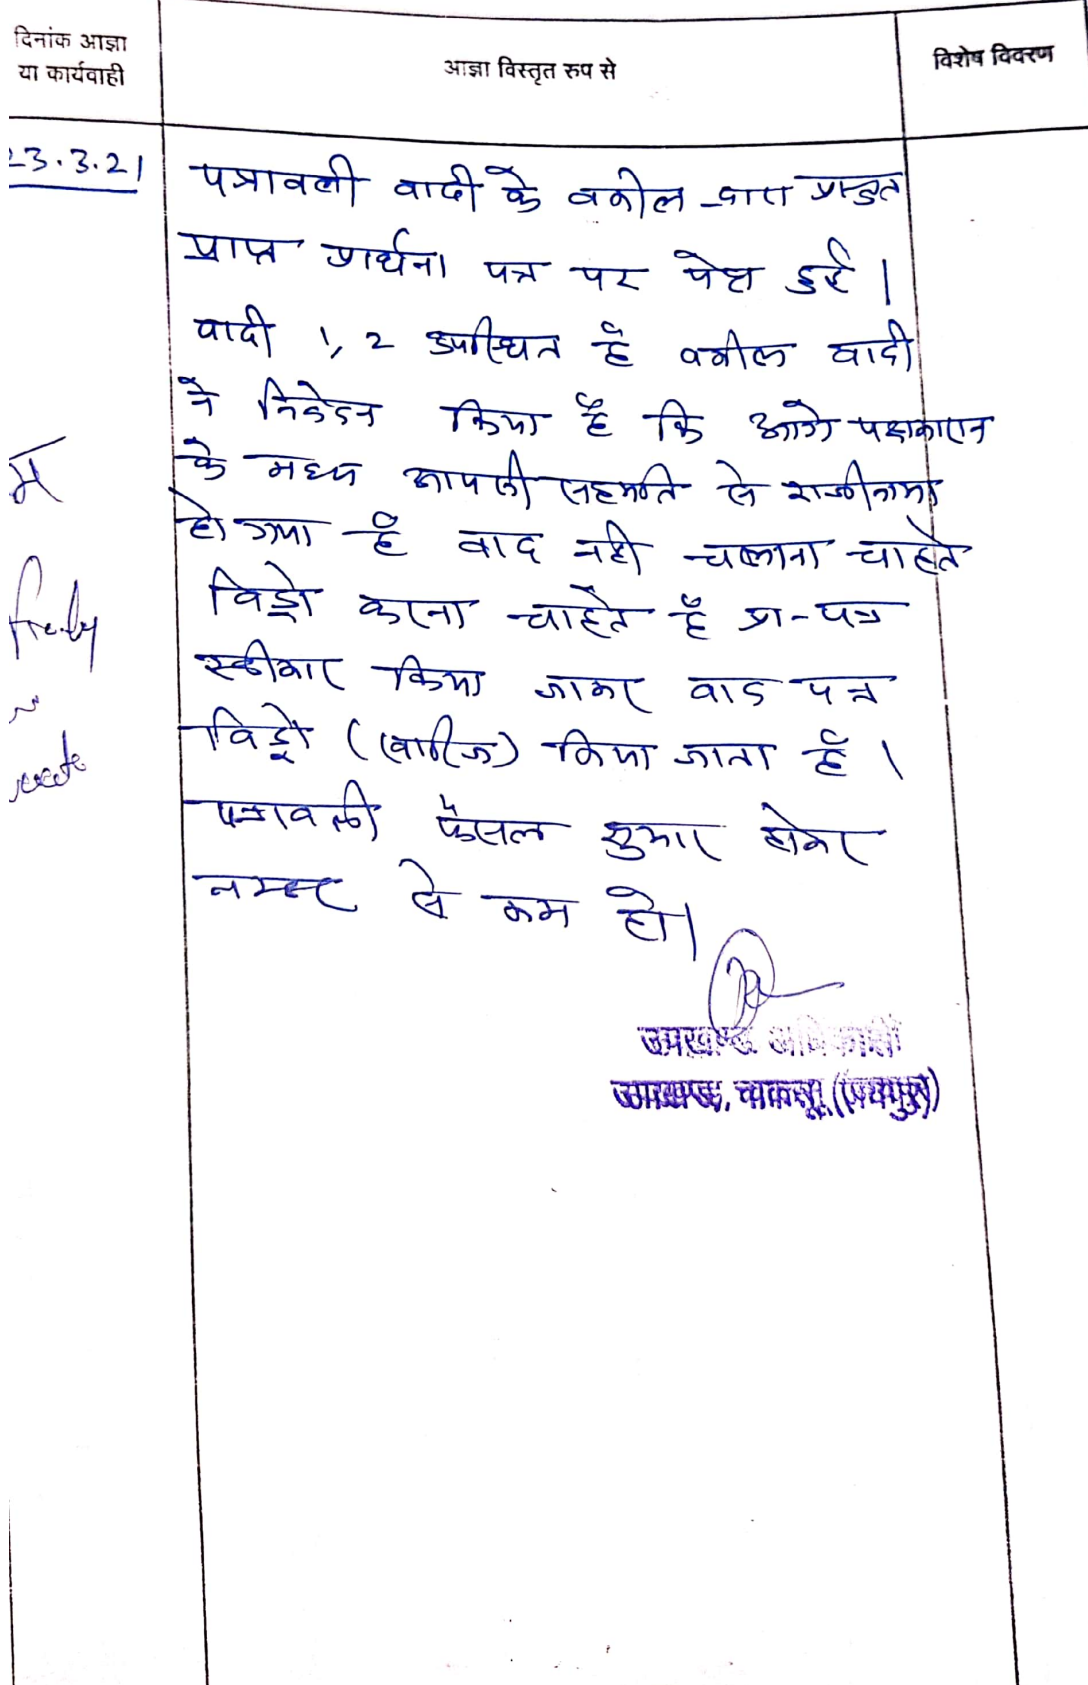 दिनांक आज्ञा
या कार्यवाही
आज्ञा विस्तृत रुप से
विशेष विवरण
23.3.21
पत्रावली वादी के वकील द्वारा प्रस्तुत
प्राप्त प्रार्थना पत्र पर पेश हुई |
वादी 1, 2 उपस्थित है वकील वादी
ने निवेदन किया है कि
के मध्य आपसी सहमति से राजीनामा
हो गया है वाद नही चलाना चाहते
विड्रो करना चाहते हैं प्रा-पत्र
स्वीकार किया जाकर वाद पत्र
विड्रो (खारिज) किया जाता है ।
पत्रावली फैसल शुमार होकर
नम्बर से कम हो|
उपखण्ड अधिकारी
उपखण्ड, चाकसू (जयपुर)